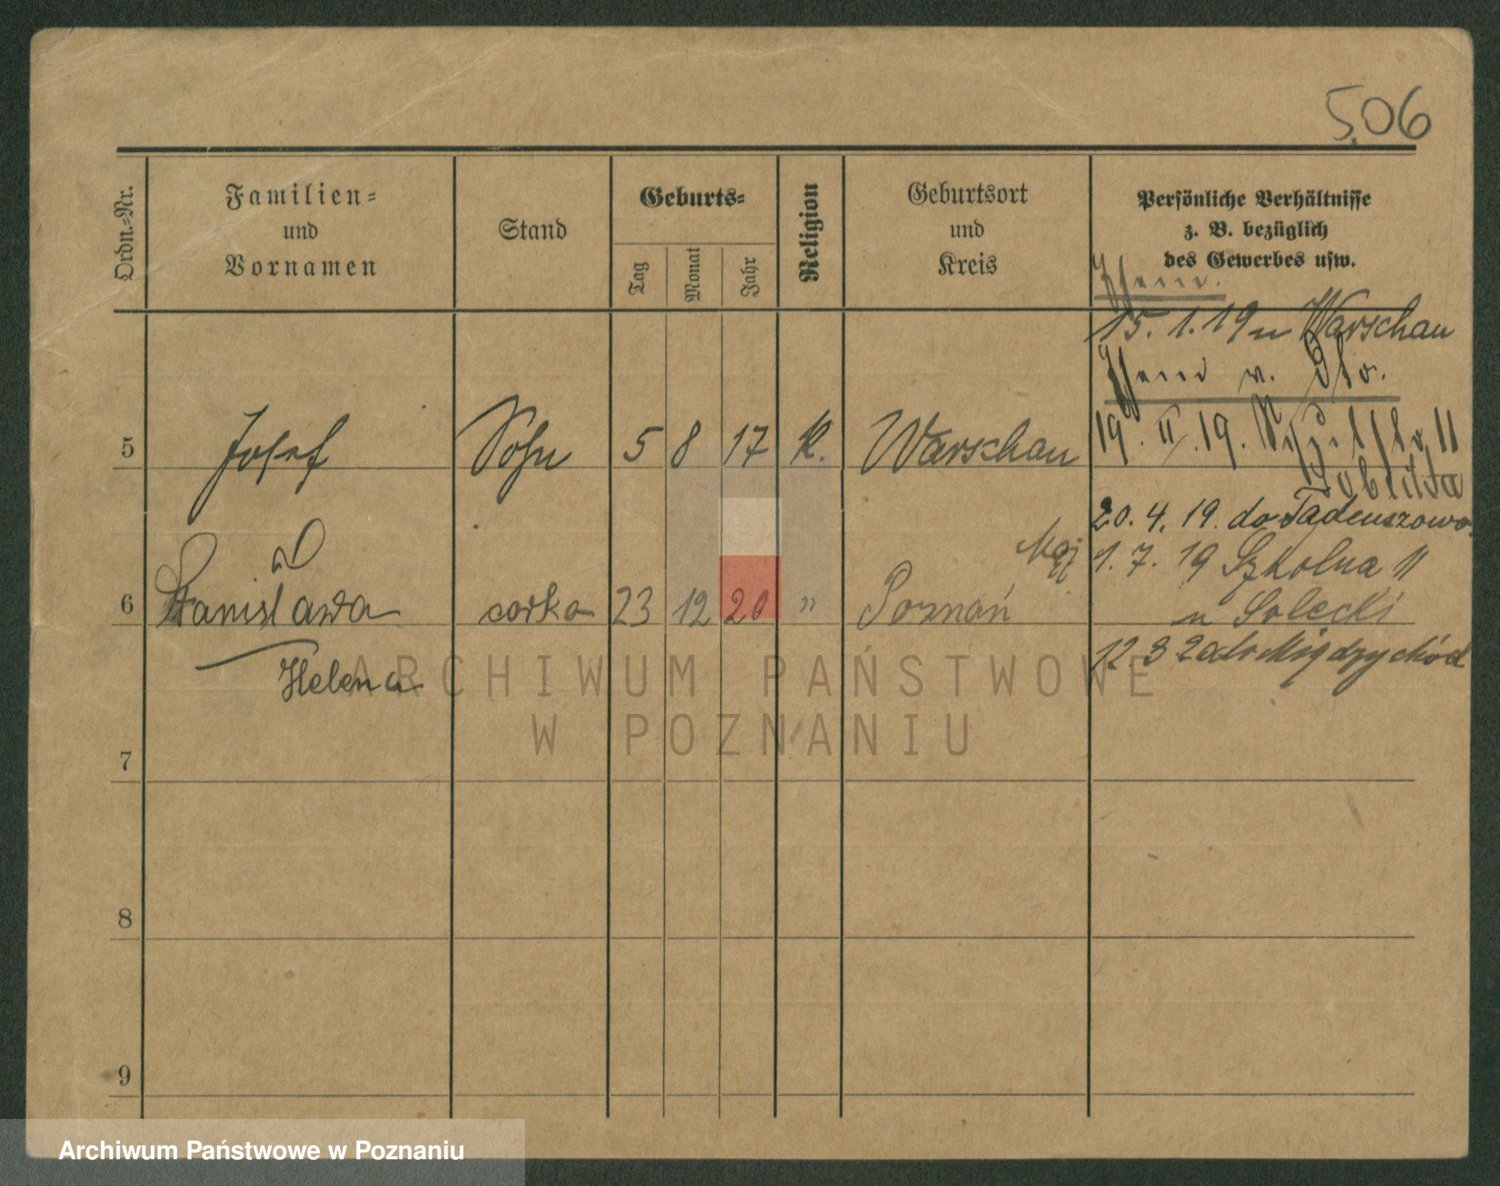 506
Ordn.-Nr.
Familien-
und
Vornamen
Stand
Geburts-
Tag
Monat
Jahr
Religion
Geburtsort
und
Kreis
Persönliche Verhältnisse
z. B. bezüglich
des Gewerbes usw.
15. 1. 19 n Warschau
5 Josef Sohn 5 8 17 K. Warschau 19. II. 19.
20. 4. 19. do Tadeuszowo
1. 7. 19 Szkolna 11
6 Stanisława córka 23 12 20 " Poznań
u Solecki
Helena
12 3 do Międzychód
ARCHIWUM PAŃSTWOWE
W POZNANIU
7
8
9
Archiwum Państwowe w Poznaniu